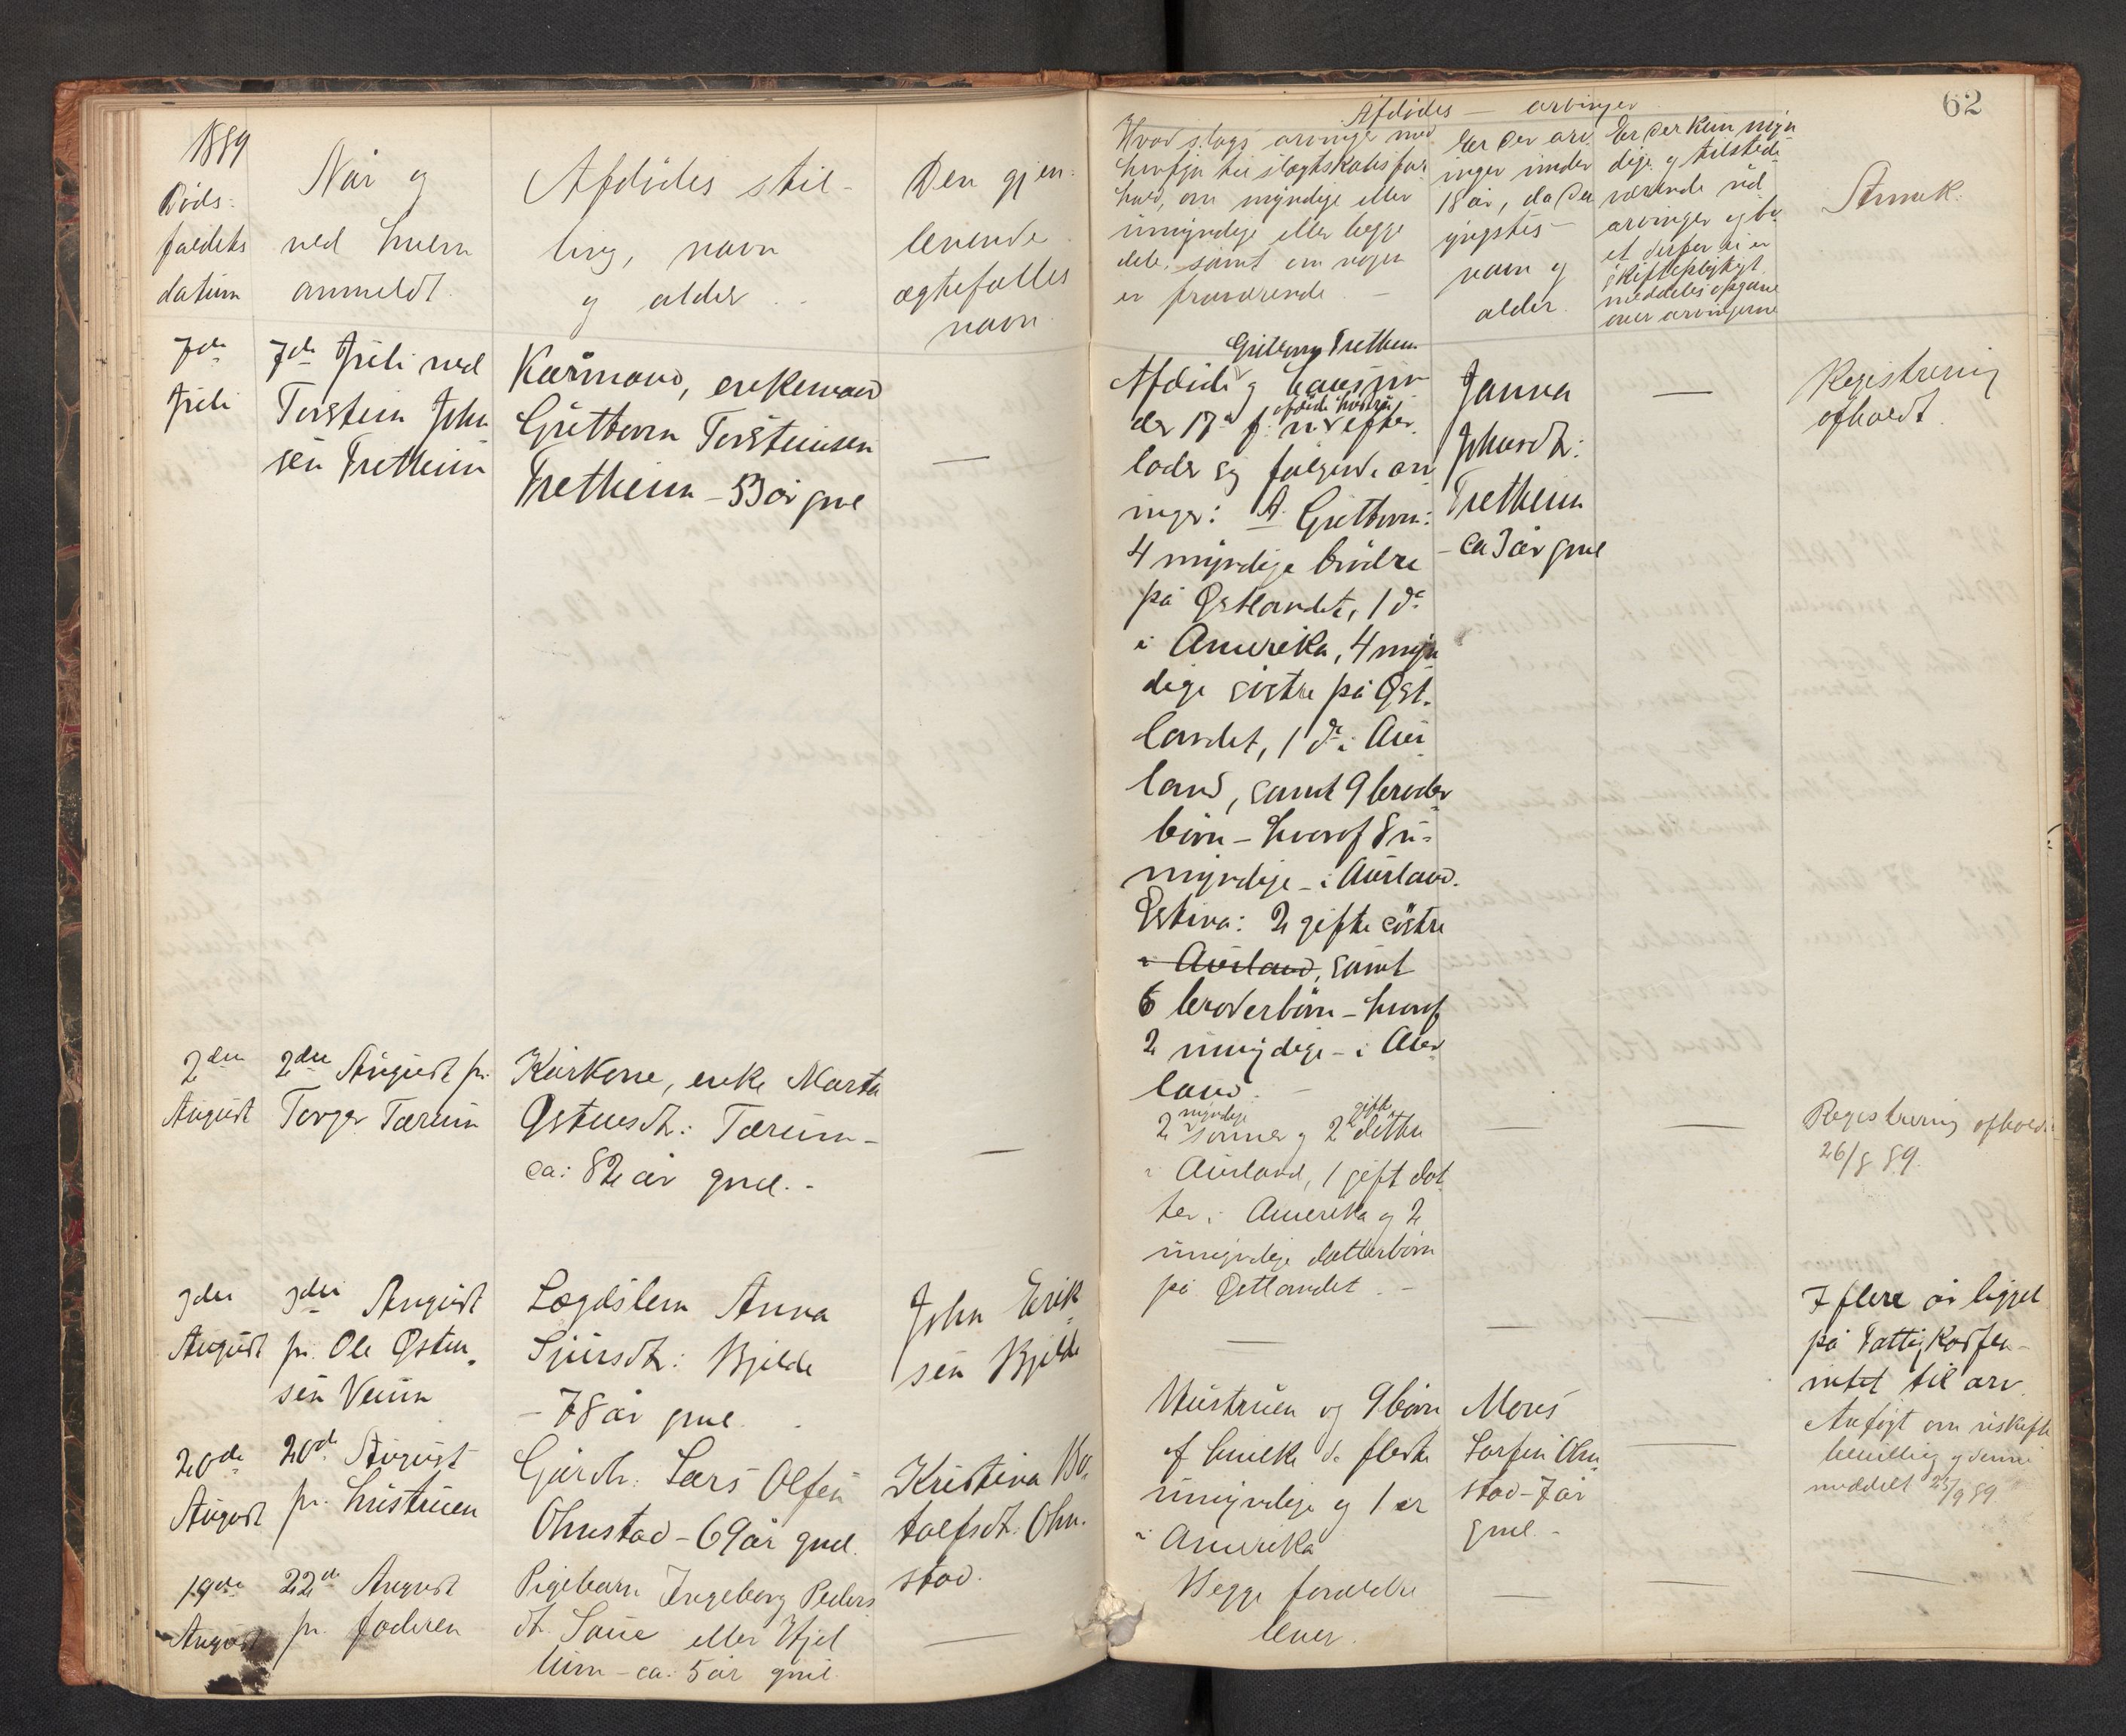 62
1889
Døds-
faldets
datum
Når og
ved hvem
anmeldt.
Afdødes stil-
ling, navn
og alder.
Den gjen-
levende
ægtefælles
navn.
Afdødes — arvinger
Hvad slags arvinger med
hensyn til slægtskabsfor-
hold, om myndige eller
umyndige eller begge
dele, samt om nogen
er fraværende. —
Er der arv-
inger under
18 år, da des
yngstes
navn og
alder.
Er der kun myn-
dige og tilstede-
værende
arvinger og bo-
et derfor ei er
skiftepligtigt
meddeles opgave
over arvingerne
Anmk.
7de
Juli
7de Juli ved
Torstein John-
sen Fretheim
Kårmand, enkemand
Guttorm Torsteinsen
Fretheim — 53 år gml
—
Guttorm Fretheim
Afdøde og hans
der 17de f.
afdøde hustru
efter-
lader sig følgende arv-
inger: A. Guttorm:
4 myndige brødre
på Østlandet, 1 do
i Amerika, 4 myn-
dige søstre på Øst-
landet, 1 do i Aur-
land, samt 9 broder-
børn — hvoraf 8 u-
myndige — i Aurland.
Østina: 2 gifte søstre
i Aurland, samt
6 broderbørn — hvoraf
2 umydige — i Aur-
land. —
Janna
Johnsdt:
Fretheim
— ca 3 år gml
—
Registrering
afholdt.
2den
August
2den August pr.
Torger Tærum
Kårkone, enke Marta
Østensdt: Tærum —
ca: 82 år gml. -
—
2 myndige sønner og 2 gifte døttre
i Aurland, 1 gift dat-
ter i Amerika og 2
umyndige datterbørn
på Østlandet. —
—
—
Registrering afholdt
26/8 89.
3die
August
3die August
pr. Ole Østen-
sen Venim
Lægdslem Anna
Sjursdt: Bjelde
— 78 år gml.
John Erik-
sen Bjelde
—
—
—
I flere år ligget
på Fattigkassen —
intet til arv.
20de
August
20de August
pr. hustruen
Gårdm. Lars Olsen
Ohnstad — 69 år gml.
Kristina Bo-
talfsdt: Ohn-
stad.
Hustruen og 9 børn
af hvilke de fleste
umyndige og 1 er
i Amerika
Mons
Larsen Ohn-
stad — 7 år
gml. -
—
Ansøgt om uskifte-
bevilling og denne
meddelt 25/9 89
19de
August
22de August
pr. faderen
Pigebarn Ingeborg Peders-
dt. Laue eller Hjel-
lum — ca: 5 år gml.
—
Begge forældre
lever.
—
—
—